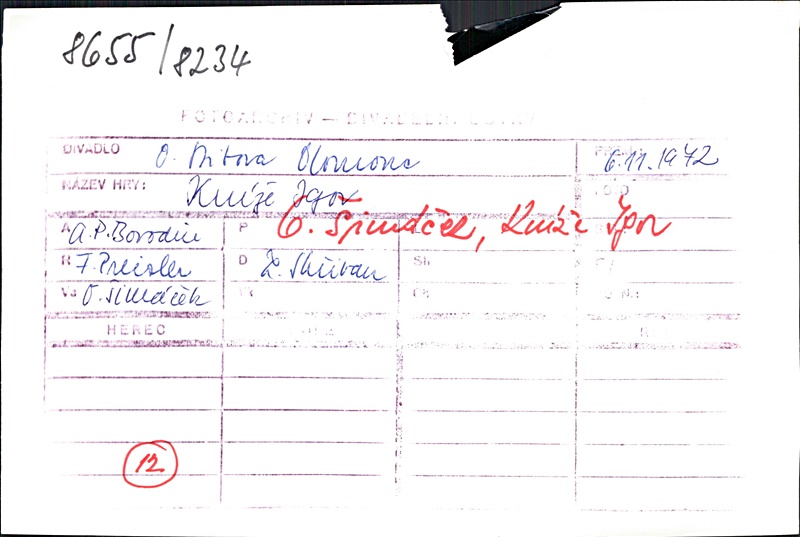 8655/8234
FOTOARCHIV — DIVADELNÍ
DIVADLO O. Stibora Olomouc 6.11.1972
NÁZEV HRY: Kníže Igor
A A.P.Borodin P O. Šimáček, Kníže Igor
R F.Preisler D Z. Skřivan Sh
Vs O. Šimáček Ch
HEREC
12